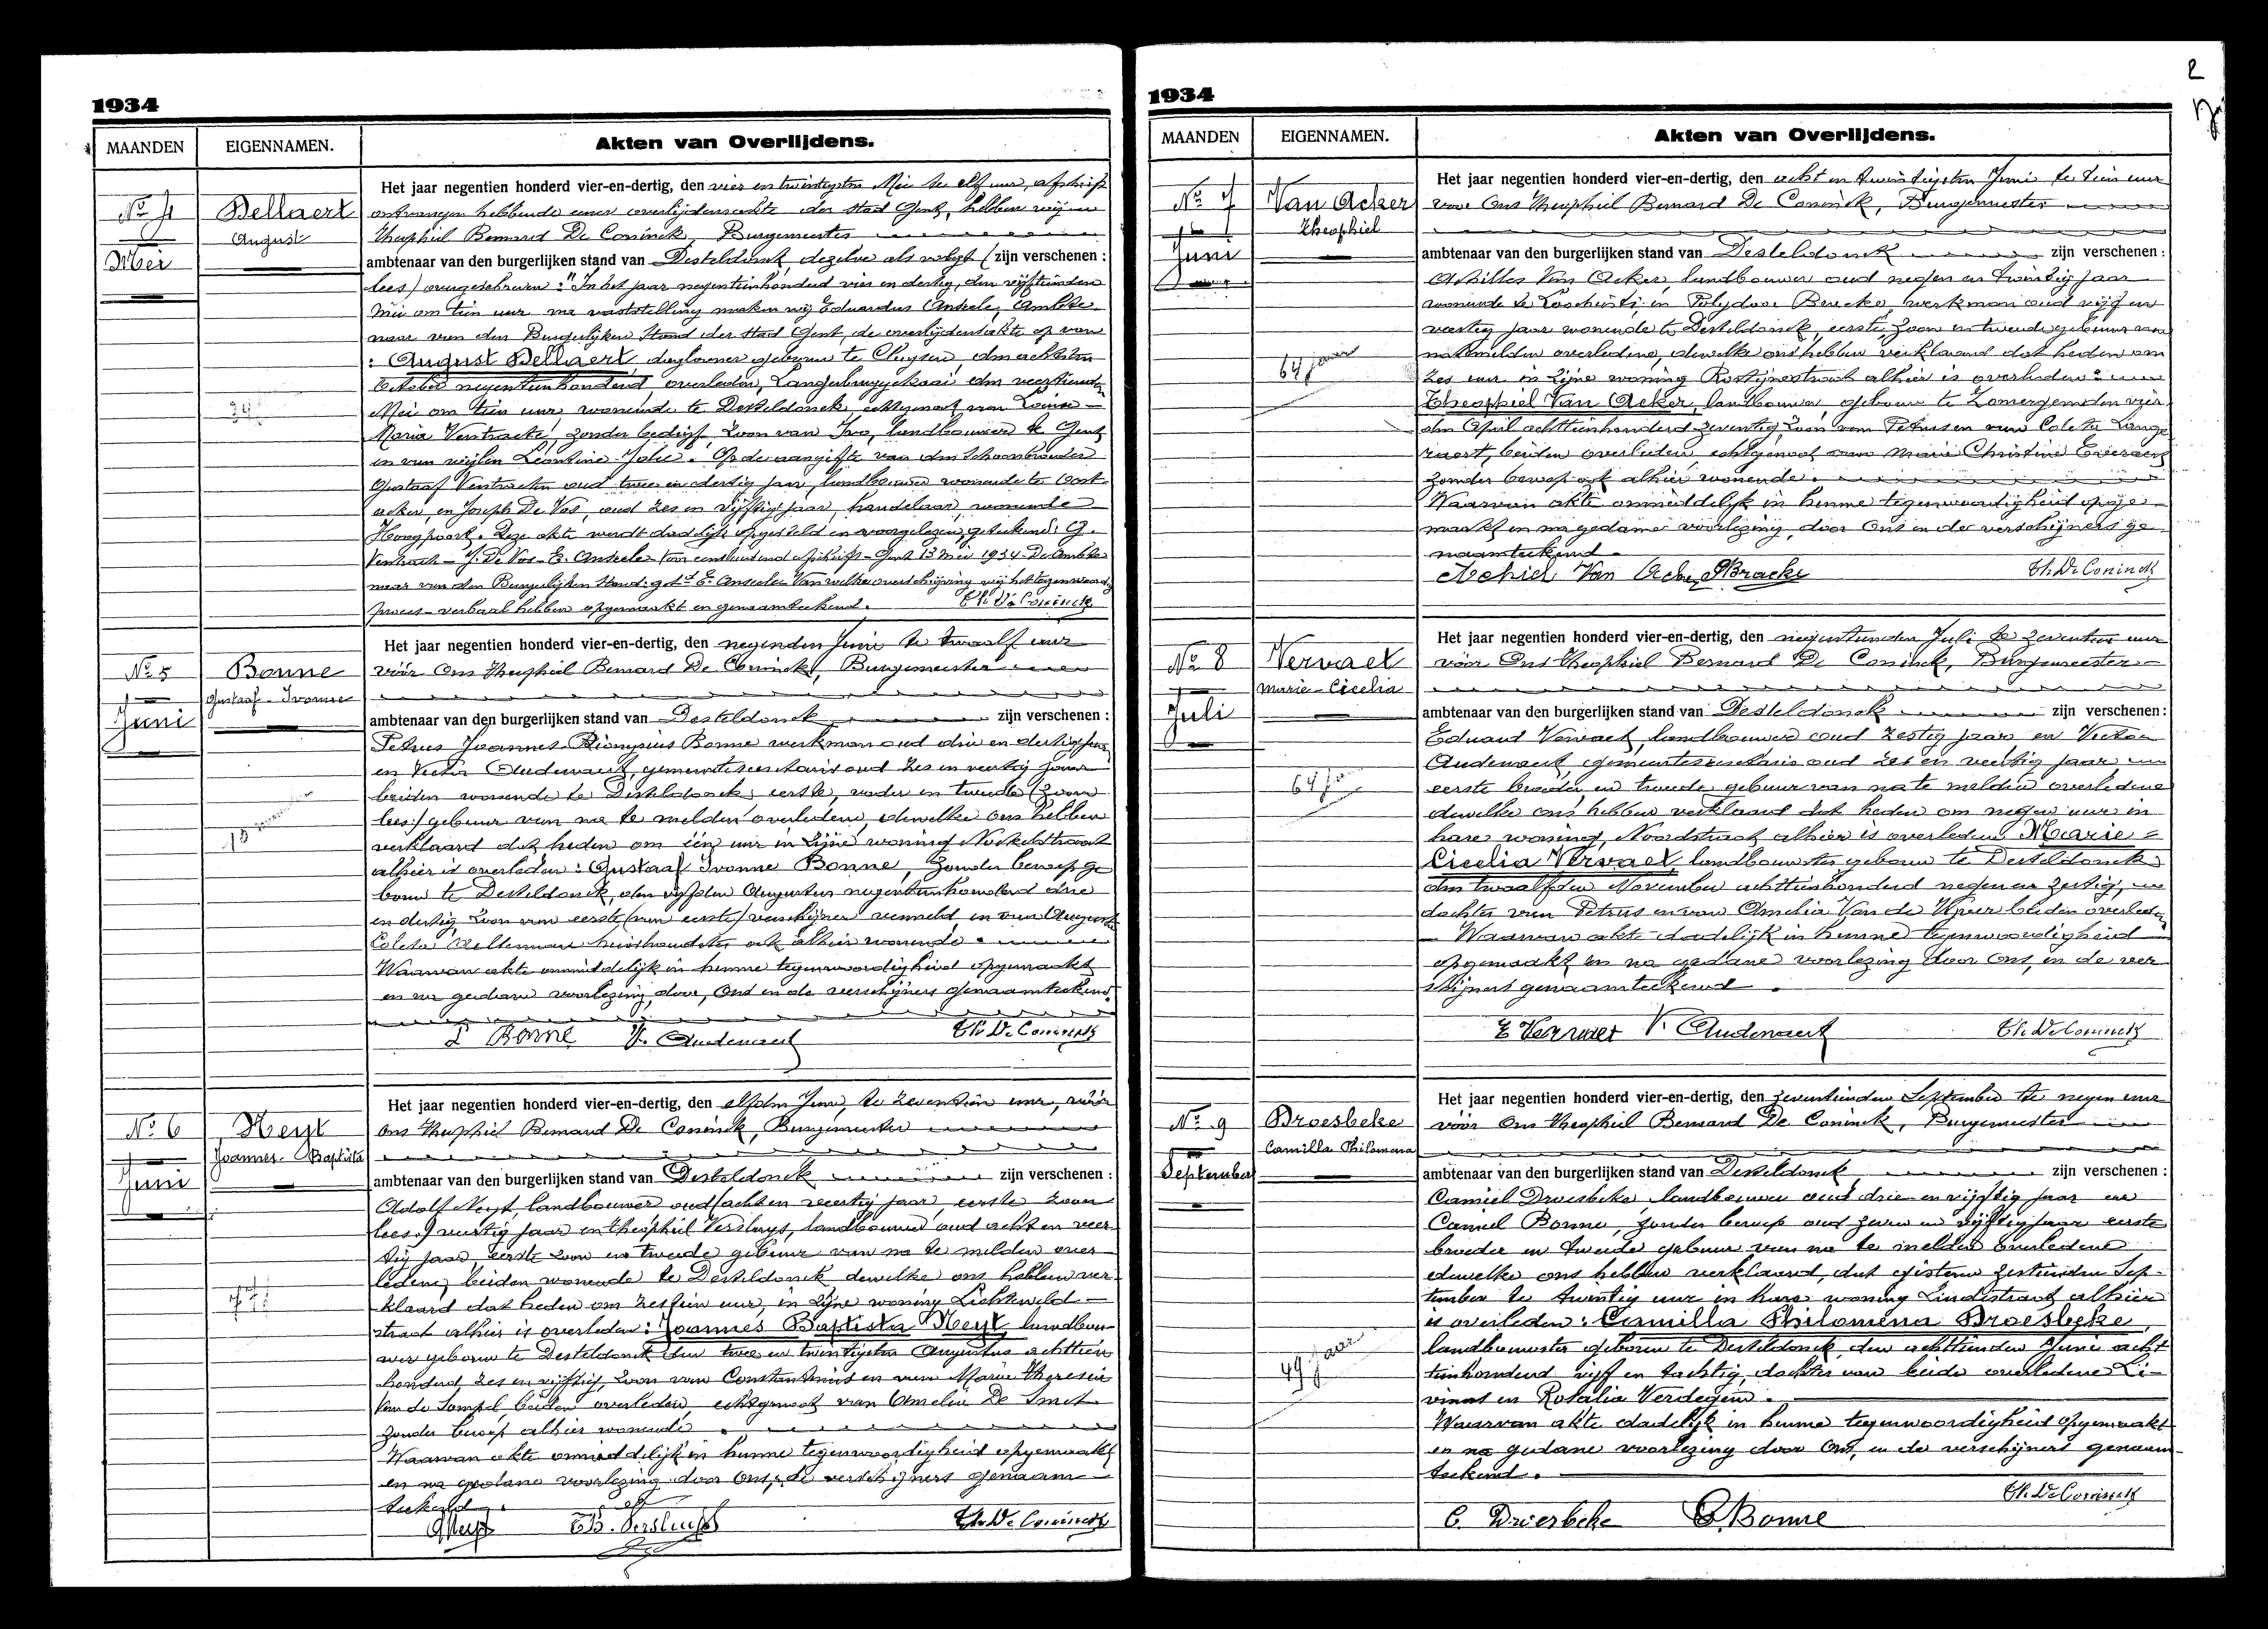 1934
MAANDEN
EIGENNAMEN.
Akten van Overlijdens.
No 4
Mei
Dellaert
August
Het jaar negentien honderd vier-en-dertig, den vier en twintigsten Mei te elf uur, afschrift
ontvangen hebbende eener overlijdensakte der stad Gent, hebben wij
Theophiel Bernard De Coninck, Burgemeester
ambtenaar van den burgerlijken stand van Desteldonck, dezelve als volgt (zijn verschenen:
lees) overgeschreven: "In het jaar negentienhonderd vier en dertig, den vijftienden
Mei om tien uur na vaststelling maken wij Eduardus Anseele, Ambte-
naar van den Burgerlijken Stand der Stad Gent, de overlijdensakte op van
: August Dellaert, daglooner geboren te Cluysen, den achtsten
October negentienhonderd, overleden, Langerbruggekaai, den veertienden
Mei om tien uur, wonende te Desteldonck, echtgenoot van Louise-
Maria Verstraete, zonder bedrijf, zoon van Ivo, landbouwer te Gent
en van wijlen Leontine Jolie. Op de aangifte van den Schoonbroeder
Gustaaf Verstraeten oud twee en dertig jaar, landbouwer wonende te Oost-
acker, en Joseph De Vos, oud zes en vijftig jaar, handelaar, wonende
Hoogpoort. Deze akte werdt dadelijk opgesteld en voorgelezen, geteekend: G.
Verstraete - J. De Vos - E. Anseele - Voor eensluidend afschrift - Gent 13 Mei 1934 De Ambte-
naar van den Burgerlijken Stand: get. E. Anseele - Van welke overschrijving wij het tegenwoordig
proces-verbaal hebben opgemaakt en genaamteekend.
Th. De Coninck
No 5
Juni
Bonne
Gustaaf - Ivonne
Het jaar negentien honderd vier-en-dertig, den negenden Juni te twaalf uur
vóór Ons Theophiel Bernard De Coninck, Burgemeester
ambtenaar van den burgerlijken stand van Desteldonck zijn verschenen:
Petrus Joannes Dionysius Bonne werkman oud drie en dertig jaar
en Victor Audenaert, gemeentesecretaris oud zes en veertig jaar
beiden wonende te Desteldonck, eerste, vader en tweede (zoon
lees:) gebuur van na te melden overledene, dewelke ons hebben
verklaard dat heden om één uur in zijne woning
alhier is overleden: Gustaaf Ivonne Bonne, zonder beroep ge-
boren te Desteldonck, den vijfden Augustus negentienhonderd drie
en dertig, zoon van eerste (van eerste) verschijner vermeld, en van Augusta
Coleta huishoudster, ook alhier wonende.
Waarvan akte onmiddelijk in hunne tegenwoordigheid opgemaakt
en na gedane voorlezing, door, Ons en de verschijners genaamteekend.
P Bonne V. Audenaert Th. De Coninck
No 6
Juni
Neyt
Joannes - Baptista
Het jaar negentien honderd vier-en-dertig, den elfden Juni, te zeventien uur, vóór
Ons Theophiel Bernard De Coninck, Burgemeester
ambtenaar van den burgerlijken stand van Desteldonck zijn verschenen:
Adolf Neyt, landbouwer oud (acht en veertig jaar, eerste zoon
lees:) veertig jaar en Theophiel Versluys, landbouwer oud acht en veer-
tig jaar, eerste zoon en tweede gebuur van na te melden over-
ledene, beiden wonende te Desteldonck dewelke ons hebben ver-
klaard dat heden om zestien uur, in zijne woning Lichtveld-
straat alhier is overleden: Joannes Baptista Neyt, landbou-
wer geboren te Desteldonck den twee en twintigsten Augustus achttien
honderd zes en vijftig, zoon van Constantinus en van Marie Theresia
Van de Sompel, beiden overleden echtgenoot van Amelia De Smet
zonder beroep alhier wonende.
Waarvan akte onmiddelijk in hunne tegenwoordigheid opgemaakt
en na gedane voorlezing door Ons, de verschijners genaam-
teekend.
A Neyt Th. Versluys Th. De Coninck
2
1934
MAANDEN
EIGENNAMEN.
Akten van Overlijdens.
No 7
Juni
Van Acker
Theophiel
64 jaar
Het jaar negentien honderd vier-en-dertig, den acht en twintigsten Juni te tien uur
voor Ons Theophiel Bernard De Coninck, Burgemeester
ambtenaar van den burgerlijken stand van Desteldonck zijn verschenen:
Achilles Van Acker, landbouwer oud negen en twintig jaar
wonende te Loochristi, en Polydoor Bracke, werkman oud vijf en
veertig jaar wonende te Desteldonck, eerste zoon en tweede gebuur van
natemelden overledene, dewelke ons hebben verklaard dat heden om
zes uur in zijne woning Rostijnestraat alhier is overleden:
Theophiel Van Acker, landbouwer, geboren te Zomergem den vier-
den April achttienhonderd zeventig, zoon van Petrus en van Coleta Lange-
raert, beiden overleden, echtgenoot van Marie Christine
zonder beroep ook alhier wonende.
Waarvan akte onmiddelijk in hunne tegenwoordigheid opge-
maakt en na gedane voorlezing, door Ons en de verschijners ge-
naamteekend.
Achiel Van Acker PBracke Th. De Coninck
No 8
Juli
Vervaet
Marie - Cicelia
64 jaar
Het jaar negentien honderd vier-en-dertig, den negentienden Juli te zeventien uur
vóór Ons Theophiel Bernard De Coninck, Burgemeester
ambtenaar van den burgerlijken stand van Desteldonck zijn verschenen:
Eduard Vervaet, landbouwer oud zestig jaar en Victor
Audenaert, gemeentesecretaris oud zes en veertig jaar
eerste broeder en tweede gebuur van na te melden overledene
dewelke ons hebben verklaard dat heden om negen uur in
hare woning, Noordstraat alhier is overleden Marie =
Cicelia Vervaet landbouwster geboren te Desteldonck
den twaalfden November achttienhonderd negen en zestig,
dochter van Petrus en van Amelia Van de Vyver beiden overleden
- Waarvan akte dadelijk in hunne tegenwoordigheid
opgemaakt en na gedane voorlezing door Ons, en de ver-
schijners genaamteekend.
E Vervaet V. Audenaert Th. De Coninck
No 9
September
Droesbeke
Camilla Philomena
49 jaar
Het jaar negentien honderd vier-en-dertig, den zeventienden September te negen uur
vóór Ons Theophiel Bernard De Coninck, Burgemeester
ambtenaar van den burgerlijken stand van Desteldonck zijn verschenen:
Camiel Droesbeke, landbouwer oud drie en vijftig jaar en
Camiel Bonne, zonder beroep oud zeven en vijftig jaar eerste
broeder en tweede gebuur van na te melden overledene
dewelke ons hebben verklaard, dat gisteren zestienden Sep-
tember te twintig uur in hare woning Lindestraat alhier
is overleden: Camilla Philomena Droesbeke,
landbouwster geboren te Desteldonck den achttienden Juni acht-
tienhonderd vijf en tachtig, dochter van beide overledene Li-
vinus en Rosalia Verdegem.
Waarvan akte dadelijk in hunne tegenwoordigheid opgemaakt
en na gedane voorlezing door Ons, en de verschijners genaam-
teekend.
Th. De Coninck
C. Droesbeke C. Bonne